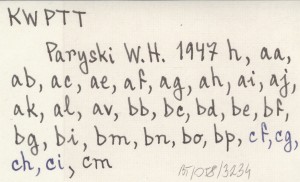 KWPTT
Paryski W.H. 1947 h, aa,
ab, ac, ae, af, ag, ah, ai, aj,
ak, al, av, bb, bc, bd, be, bf,
bg, bi, bm, bn, bo, bp, cf, cg,
ch, ci, cm